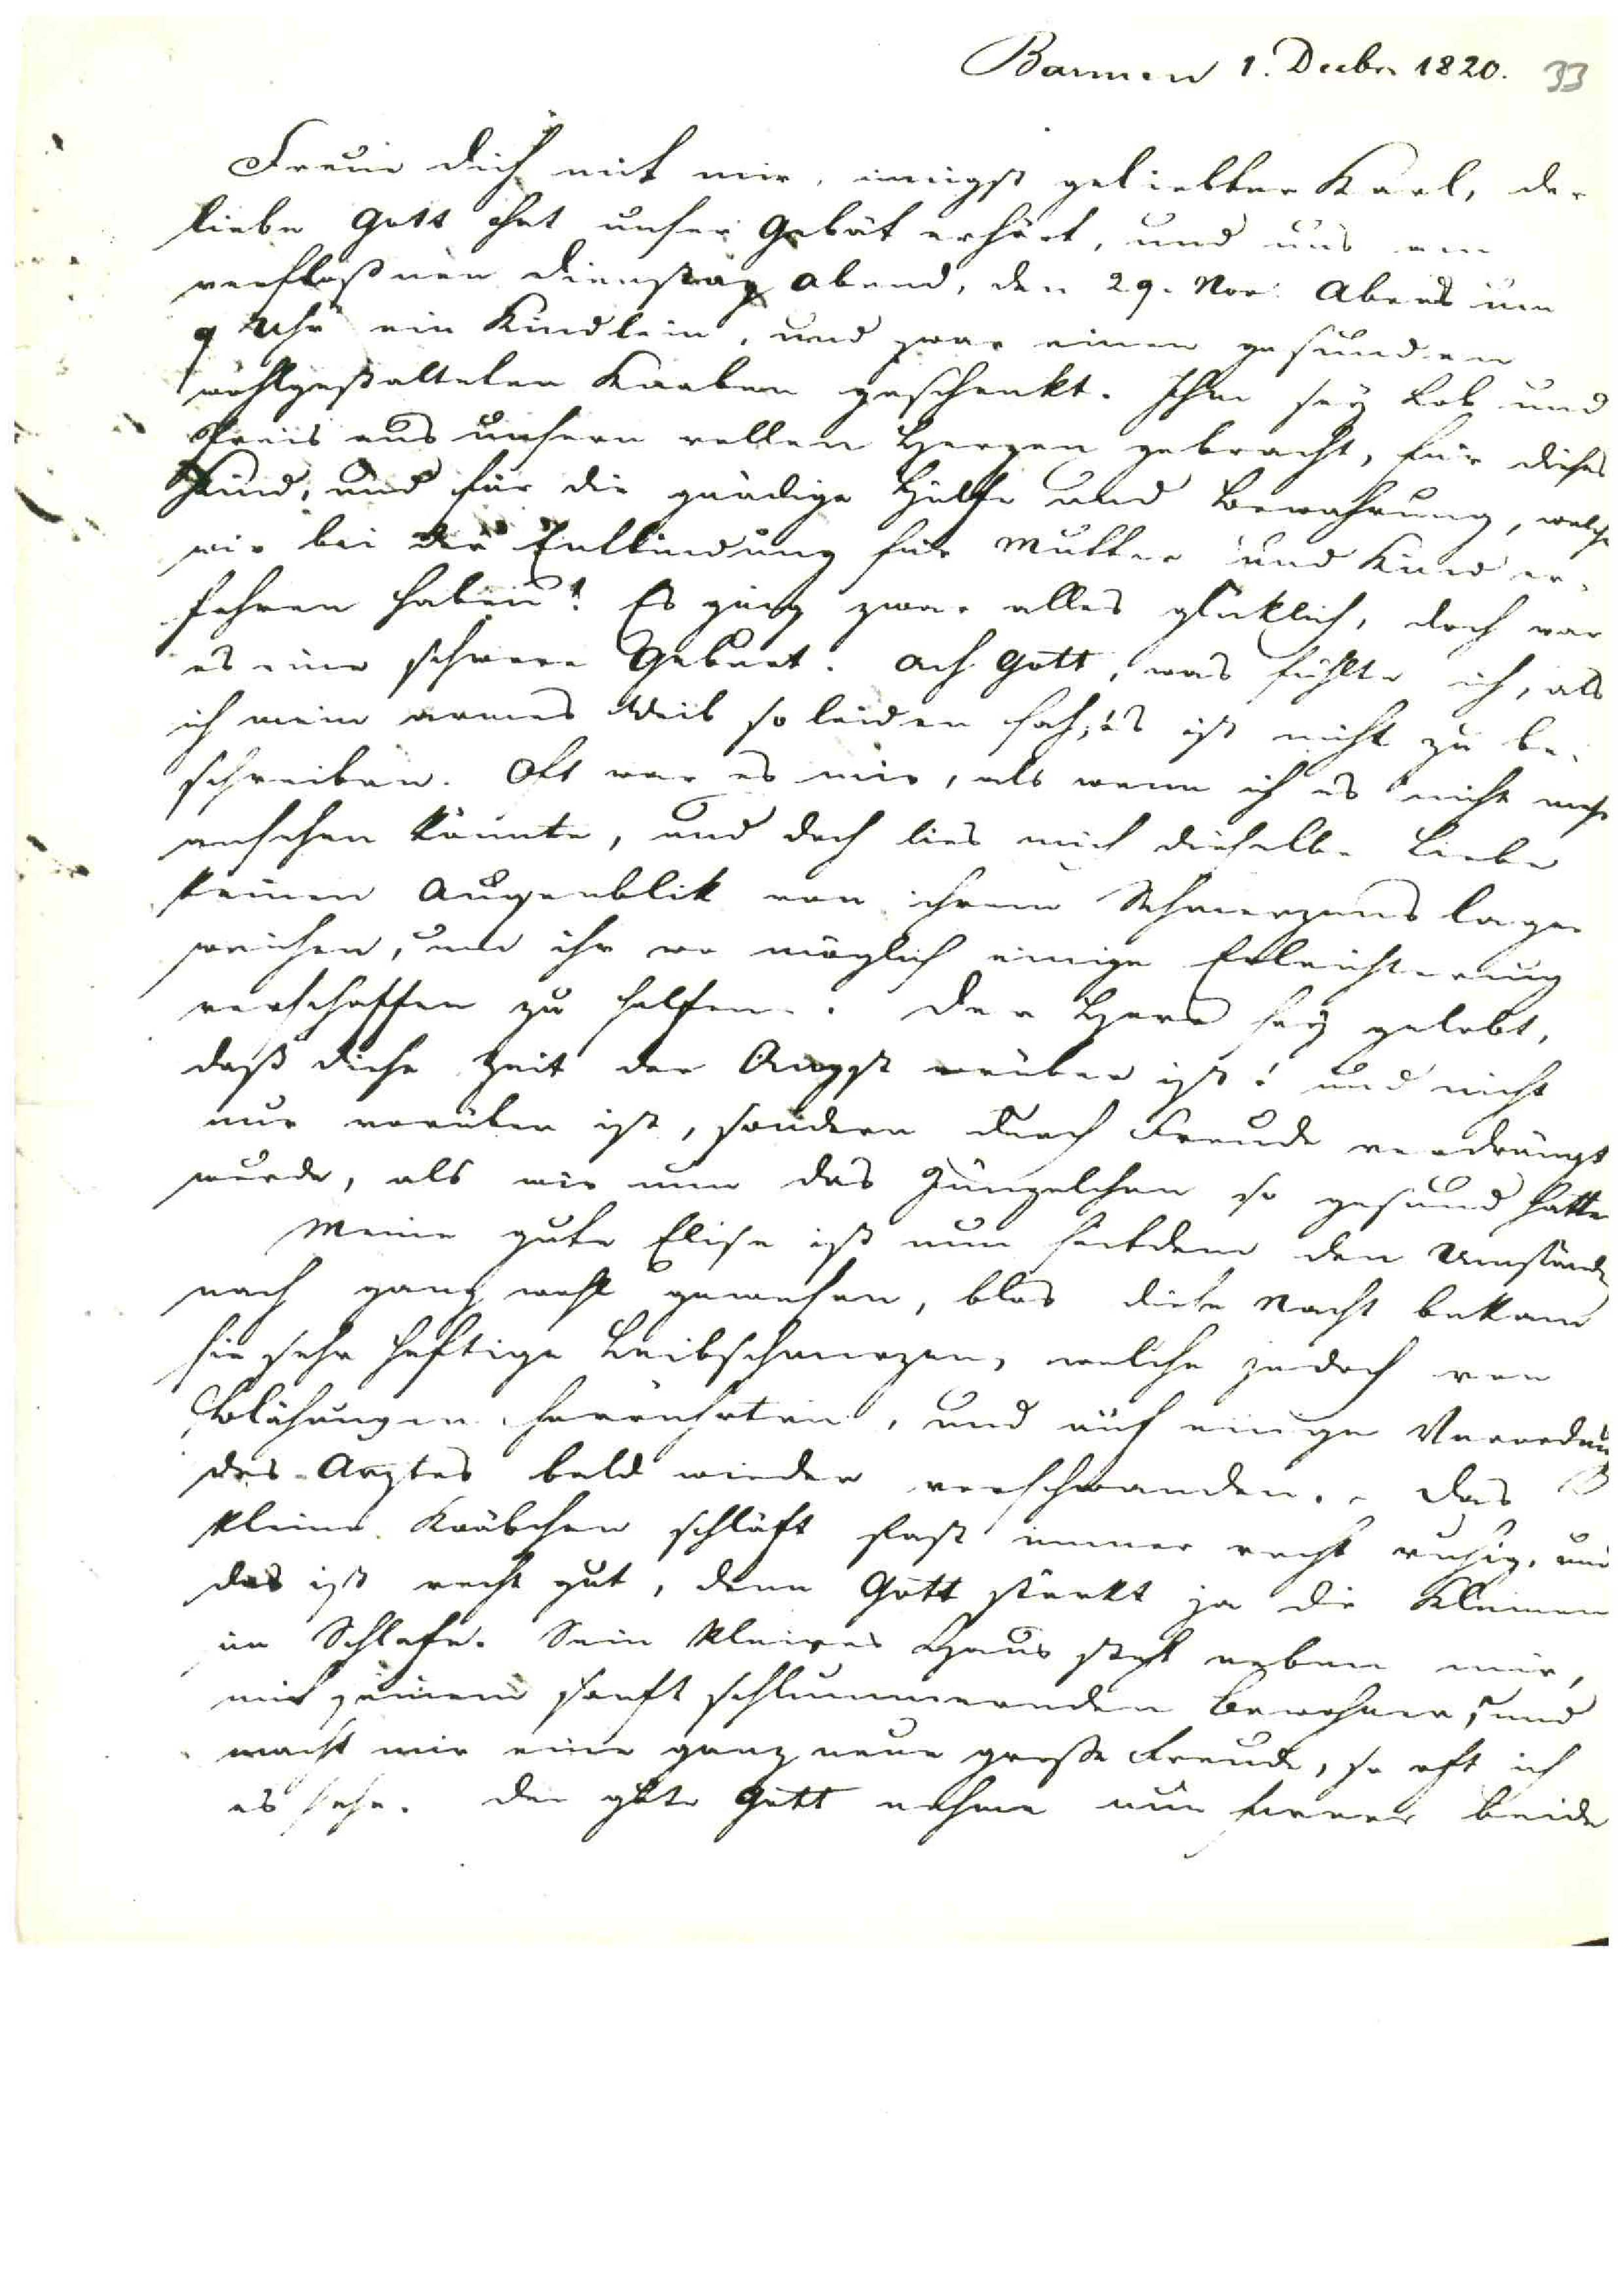 Barmen 1. Decbr 1820. 33
Freue dich mit mir, innigst geliebter Karl, der
liebe Gott hat unser Gebät erhört, und uns am
verfloßnen Dienstag Abend, den 29. Nov. Abends um
9 Uhr ein Kindlein, und zwar einen gesunden
wohlgestalteten Knaben geschenkt. Ihm sey Lob und
Preis aus unsern vollen Herzen gebracht, für dieses
Kind, und für die gnädige Hülfe und Bewahrung, welche
wir bei der Entbindung für Mutter und Kind er-
fahren haben! Es ging zwar alles glüklich, doch war
es eine schwere Geburt. Ach Gott, was fühlte ich, als
ich mein armes Weib so leiden sah, es ist nicht zu be-
schreiben. Oft war es mir, als wenn ich es nicht mehr
ansehen könnte, und doch lies mich dieselbe Liebe
keinen Augenblik von ihrem Schmerzenslager
weichen, um ihr wo möglich einige Erleichterung
verschaffen zu helfen. Der Herr sey gelobt,
daß diese Zeit der Angst vorüber ist! und nicht
nur vorüber ist, sondern durch Freude verdrängt
wurde, als wir nun das Jüngelchen so gesund hatten
Meine gute Elise ist nun seitdem den Umständen
nach ganz wohl gewesen, blos diese Nacht bekam
sie sehr heftige Leibschmerzen, welche jedoch von
Blähungen herrührten, und auf einige Verordnung
des Arztes bald wieder verschwanden. - Das
kleine Knäbchen schläft fast immer recht ruhig, und
das ist recht gut, denn Gott stärkt ja die Kleinen
im Schlafe. Sein kleines Haus steht neben mir,
mit seinem sanft schlummernden Bewohner, und
macht mir eine ganz neue große Freude, so oft ich
es sehe. Der gute Gott nehme nun ferner beide